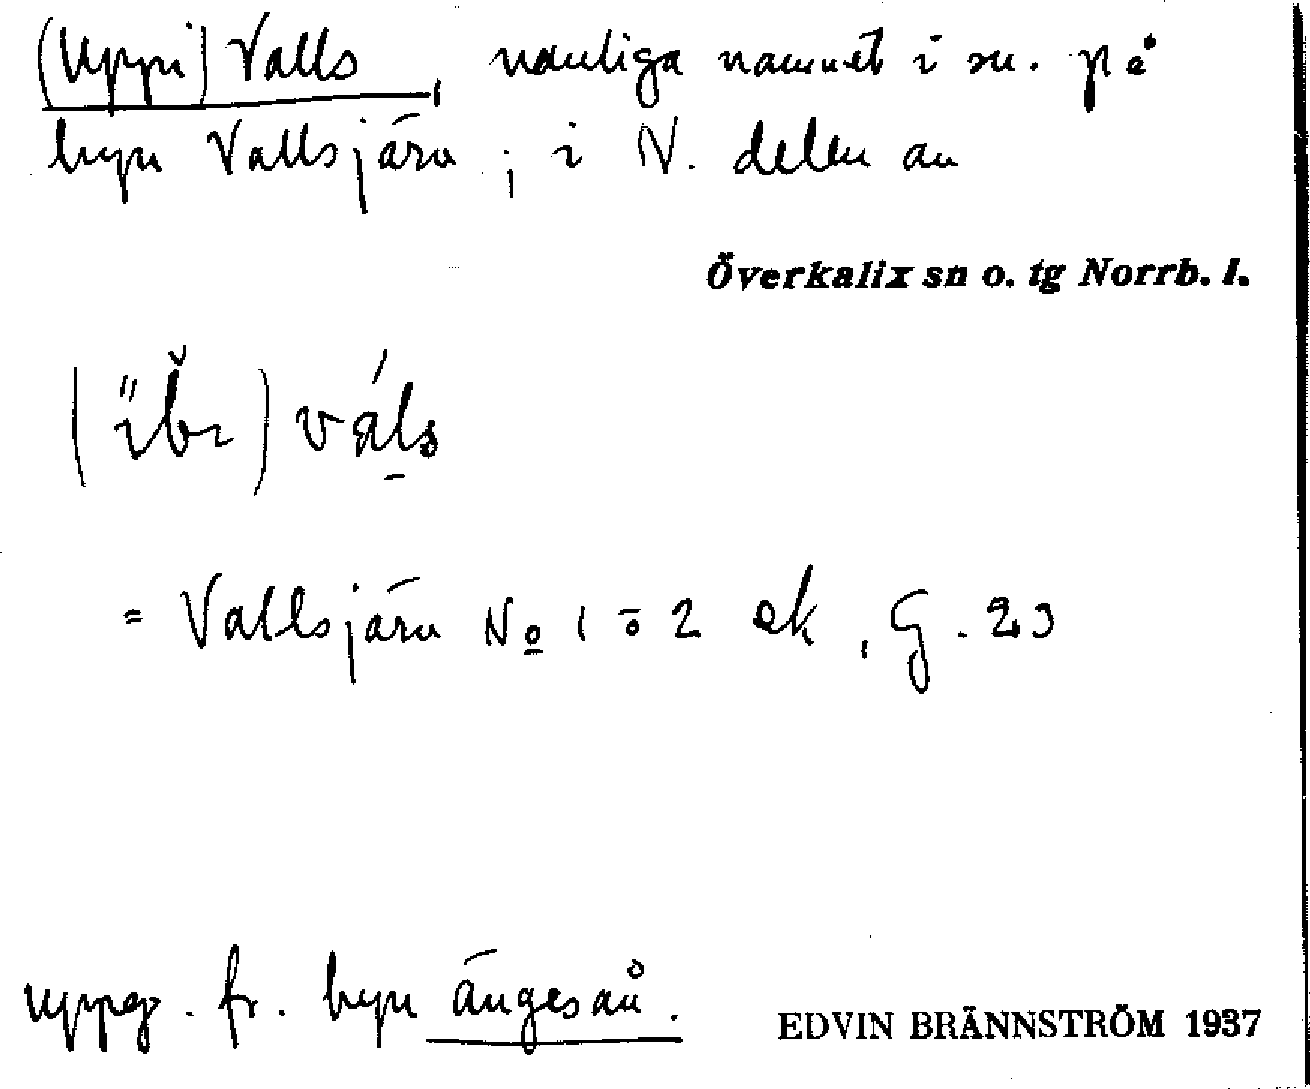 (Uppi) Valls, vanliga namnet i sn. på
byn Vallsjärv; i N. delen av
Överkalix sn o. tg Norrb. l.
váls
= Vallsjärv No 1 o 2 ek, G. 23
uppg. fr. byn Ängesån.
EDVIN BRÄNNSTRÖM 1937